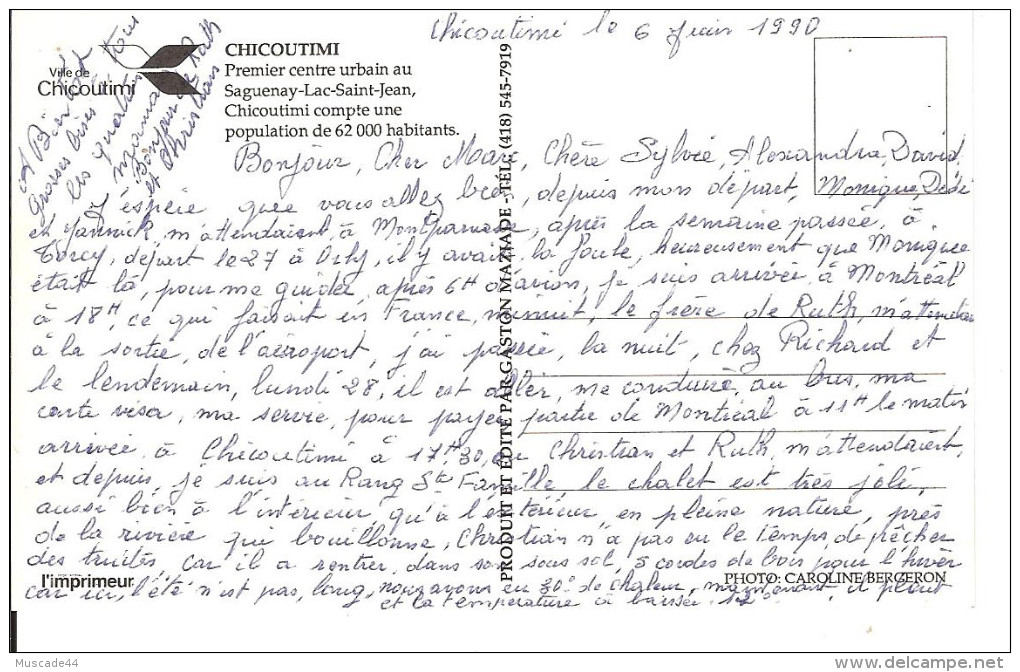 Chicoutimi le 6 Juin 1990
Ville de
Chicoutimi
CHICOUTIMI
Premier centre urbain au
Saguenay-Lac-Saint-Jean,
Chicoutimi compte une
population de 62 000 habitants.
Bonjour, Cher Marc, Chère Sylvie, Alexandra, David,
J'espère que vous allez bien, depuis mon départ, Monique, Dédé
et Yannick, m'attendaient, à Montparnasse, après la semaine passée, à
Torcy, départ le 27 à Orly, il y avait la foule, heureusement que Monique
était là, pour me guider, après 6H d'avion, je suis arrivée à Montréal
à 18H, ce qui faisait en France, minuit, le frère de Ruth, m'attendait
à la sortie, de l'aéroport, j'ai passée, la nuit, chez Richard et
le lendemain, lundi 28, il est aller, me conduire, au bus, ma
carte visa, ma servie, pour payer, partie de Montréal à 11H le matin
arrivée à Chicoutimi à 17H,30, Christian et Ruth, m'attendaient,
et depuis, je suis au Rang Ste Famille le chalet est très joli,
aussi bien à l'intérieur, qu'à l'extérieur, en pleine nature, près
de la rivière qui bouillonne, Christian n'a pas eu le temps de pêcher
des truites, car il a rentrer, dans son sous sol, 5 cordes de bois pour l'hiver
car ici, l'été n'est pas, long, nous avons eu 30° de chaleur, maintenant il pleut
et la température à baissée 12°
A Bientôt
Grosses bises à tous
les quatre
Maman
Bonjour de Ruth
et Christian
PRODUIT ET ÉDITÉ PAR GASTON MAZIADE - TÉL.: (418) 545-7919
l'imprimeur
PHOTO: CAROLINE BERGERON
Muscade44
delcampe.net